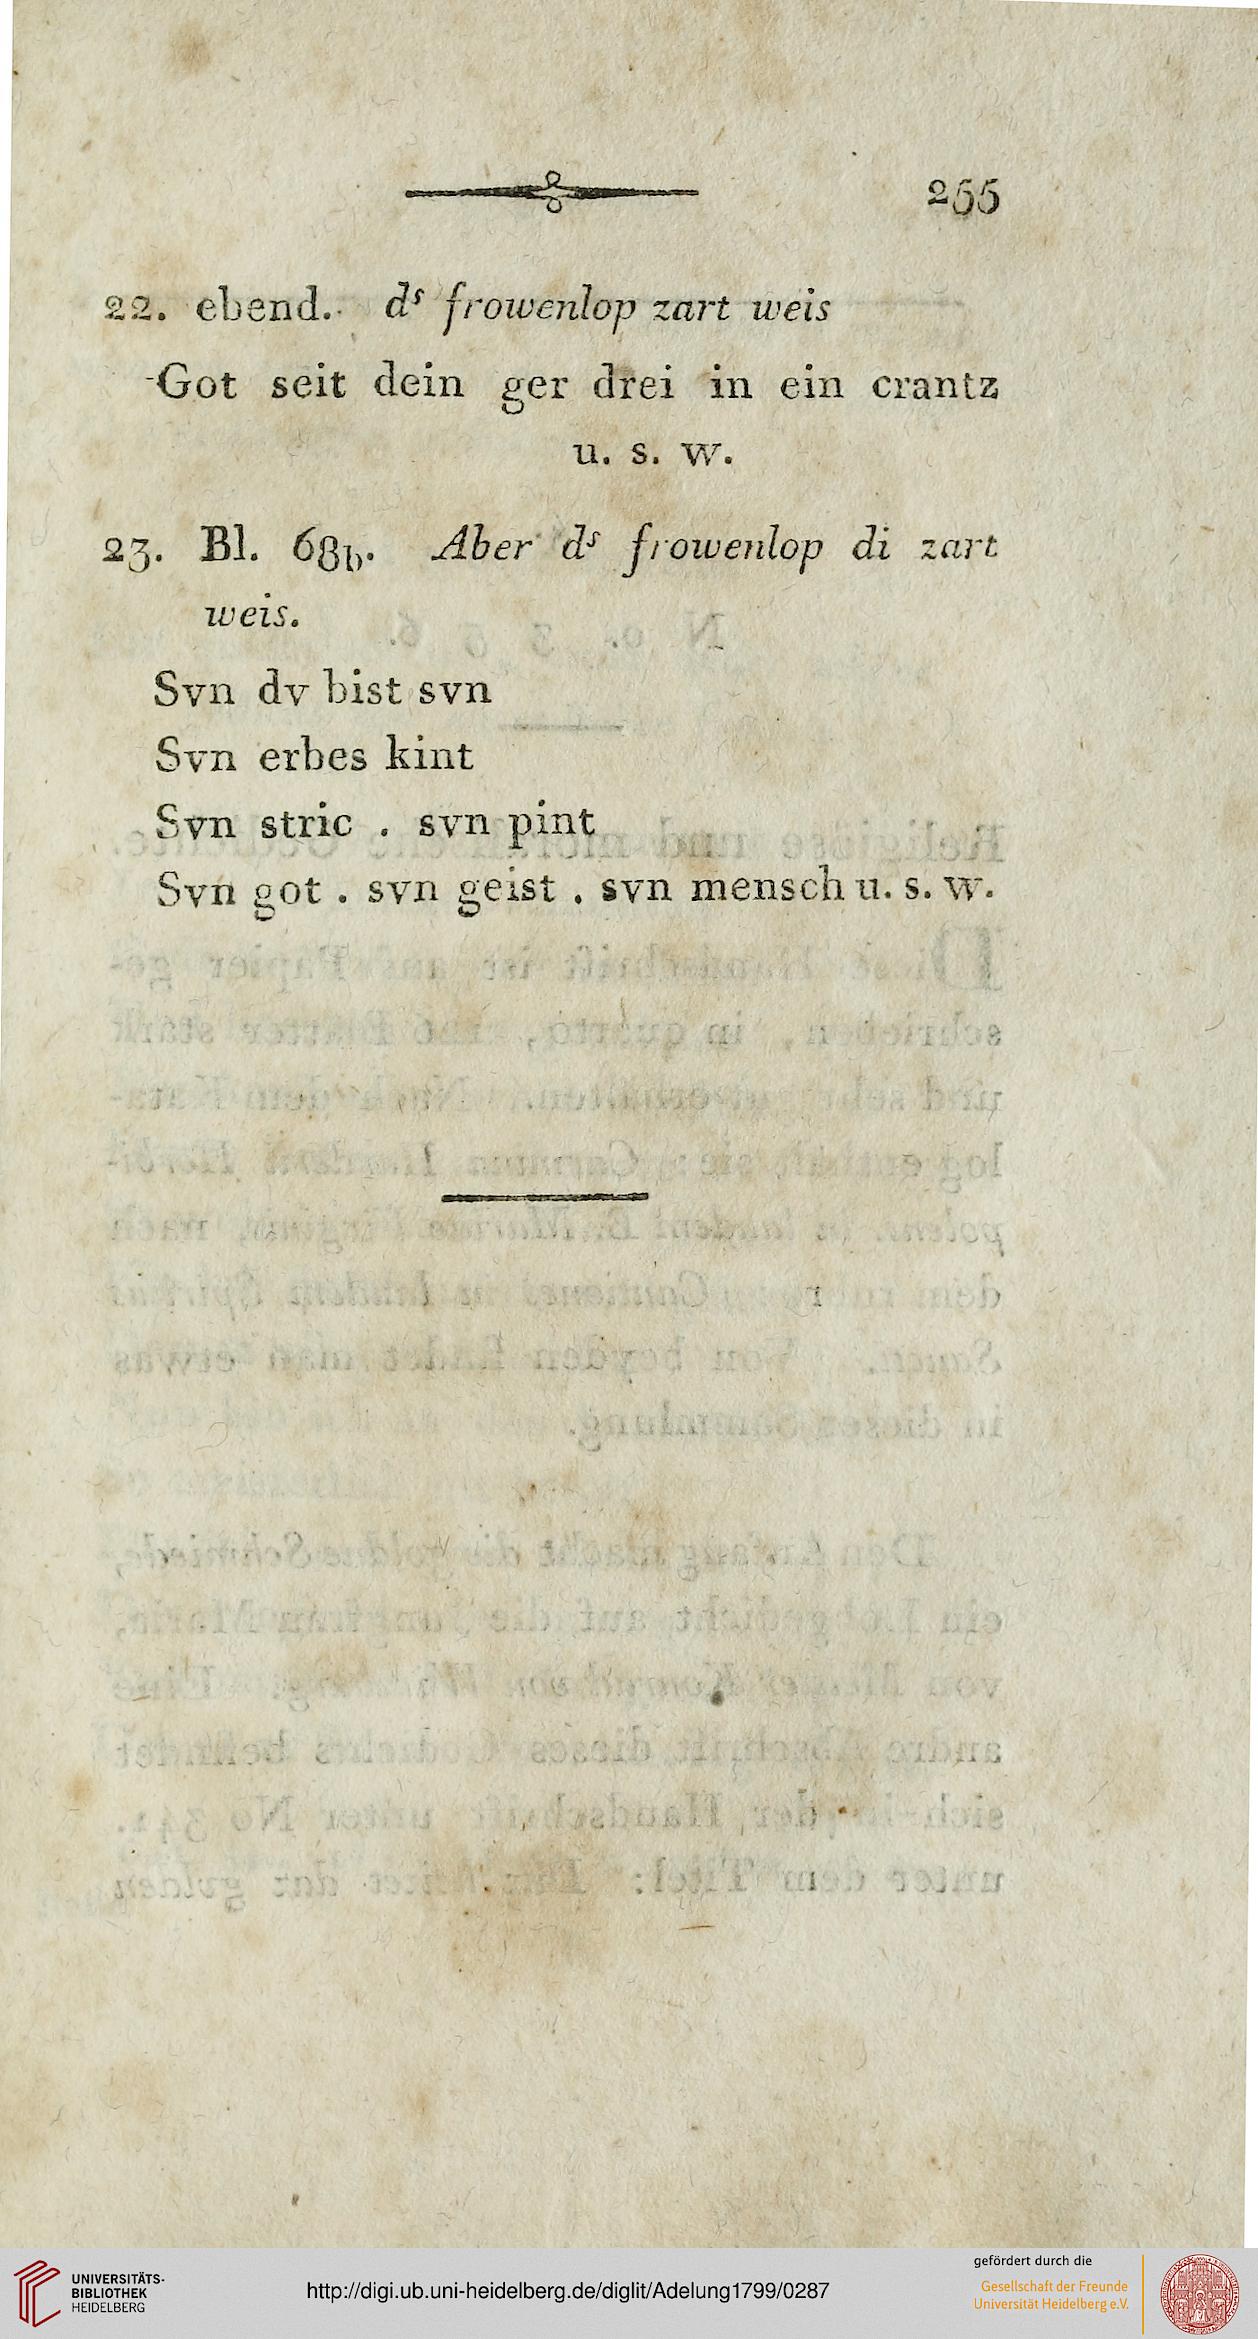 255
22. ebend. dˢ frowenlop zart weis
Got seit dein ger drei in ein crantz
u. s. w.
23. Bl. 68b. Aber dˢ frowenlop di zart
weis.
Svn dv bist svn
Svn erbes kint
Svn stric . svn pint
Svn got . svn geist . svn mensch u. s. w.
UNIVERSITÄTS-
BIBLIOTHEK
HEIDELBERG
http://digi.ub.uni-heidelberg.de/diglit/Adelung1799/0287
gefördert durch die
Gesellschaft der Freunde
Universität Heidelberg e.V.